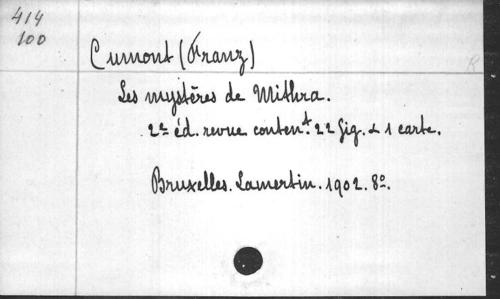 414
100
Cumont (Franz)
Les mystères de Mithra.
2e éd. revue conten.t 22 fig. & 1 carte.
Bruxelles. Lamertin. 1902. 8o.